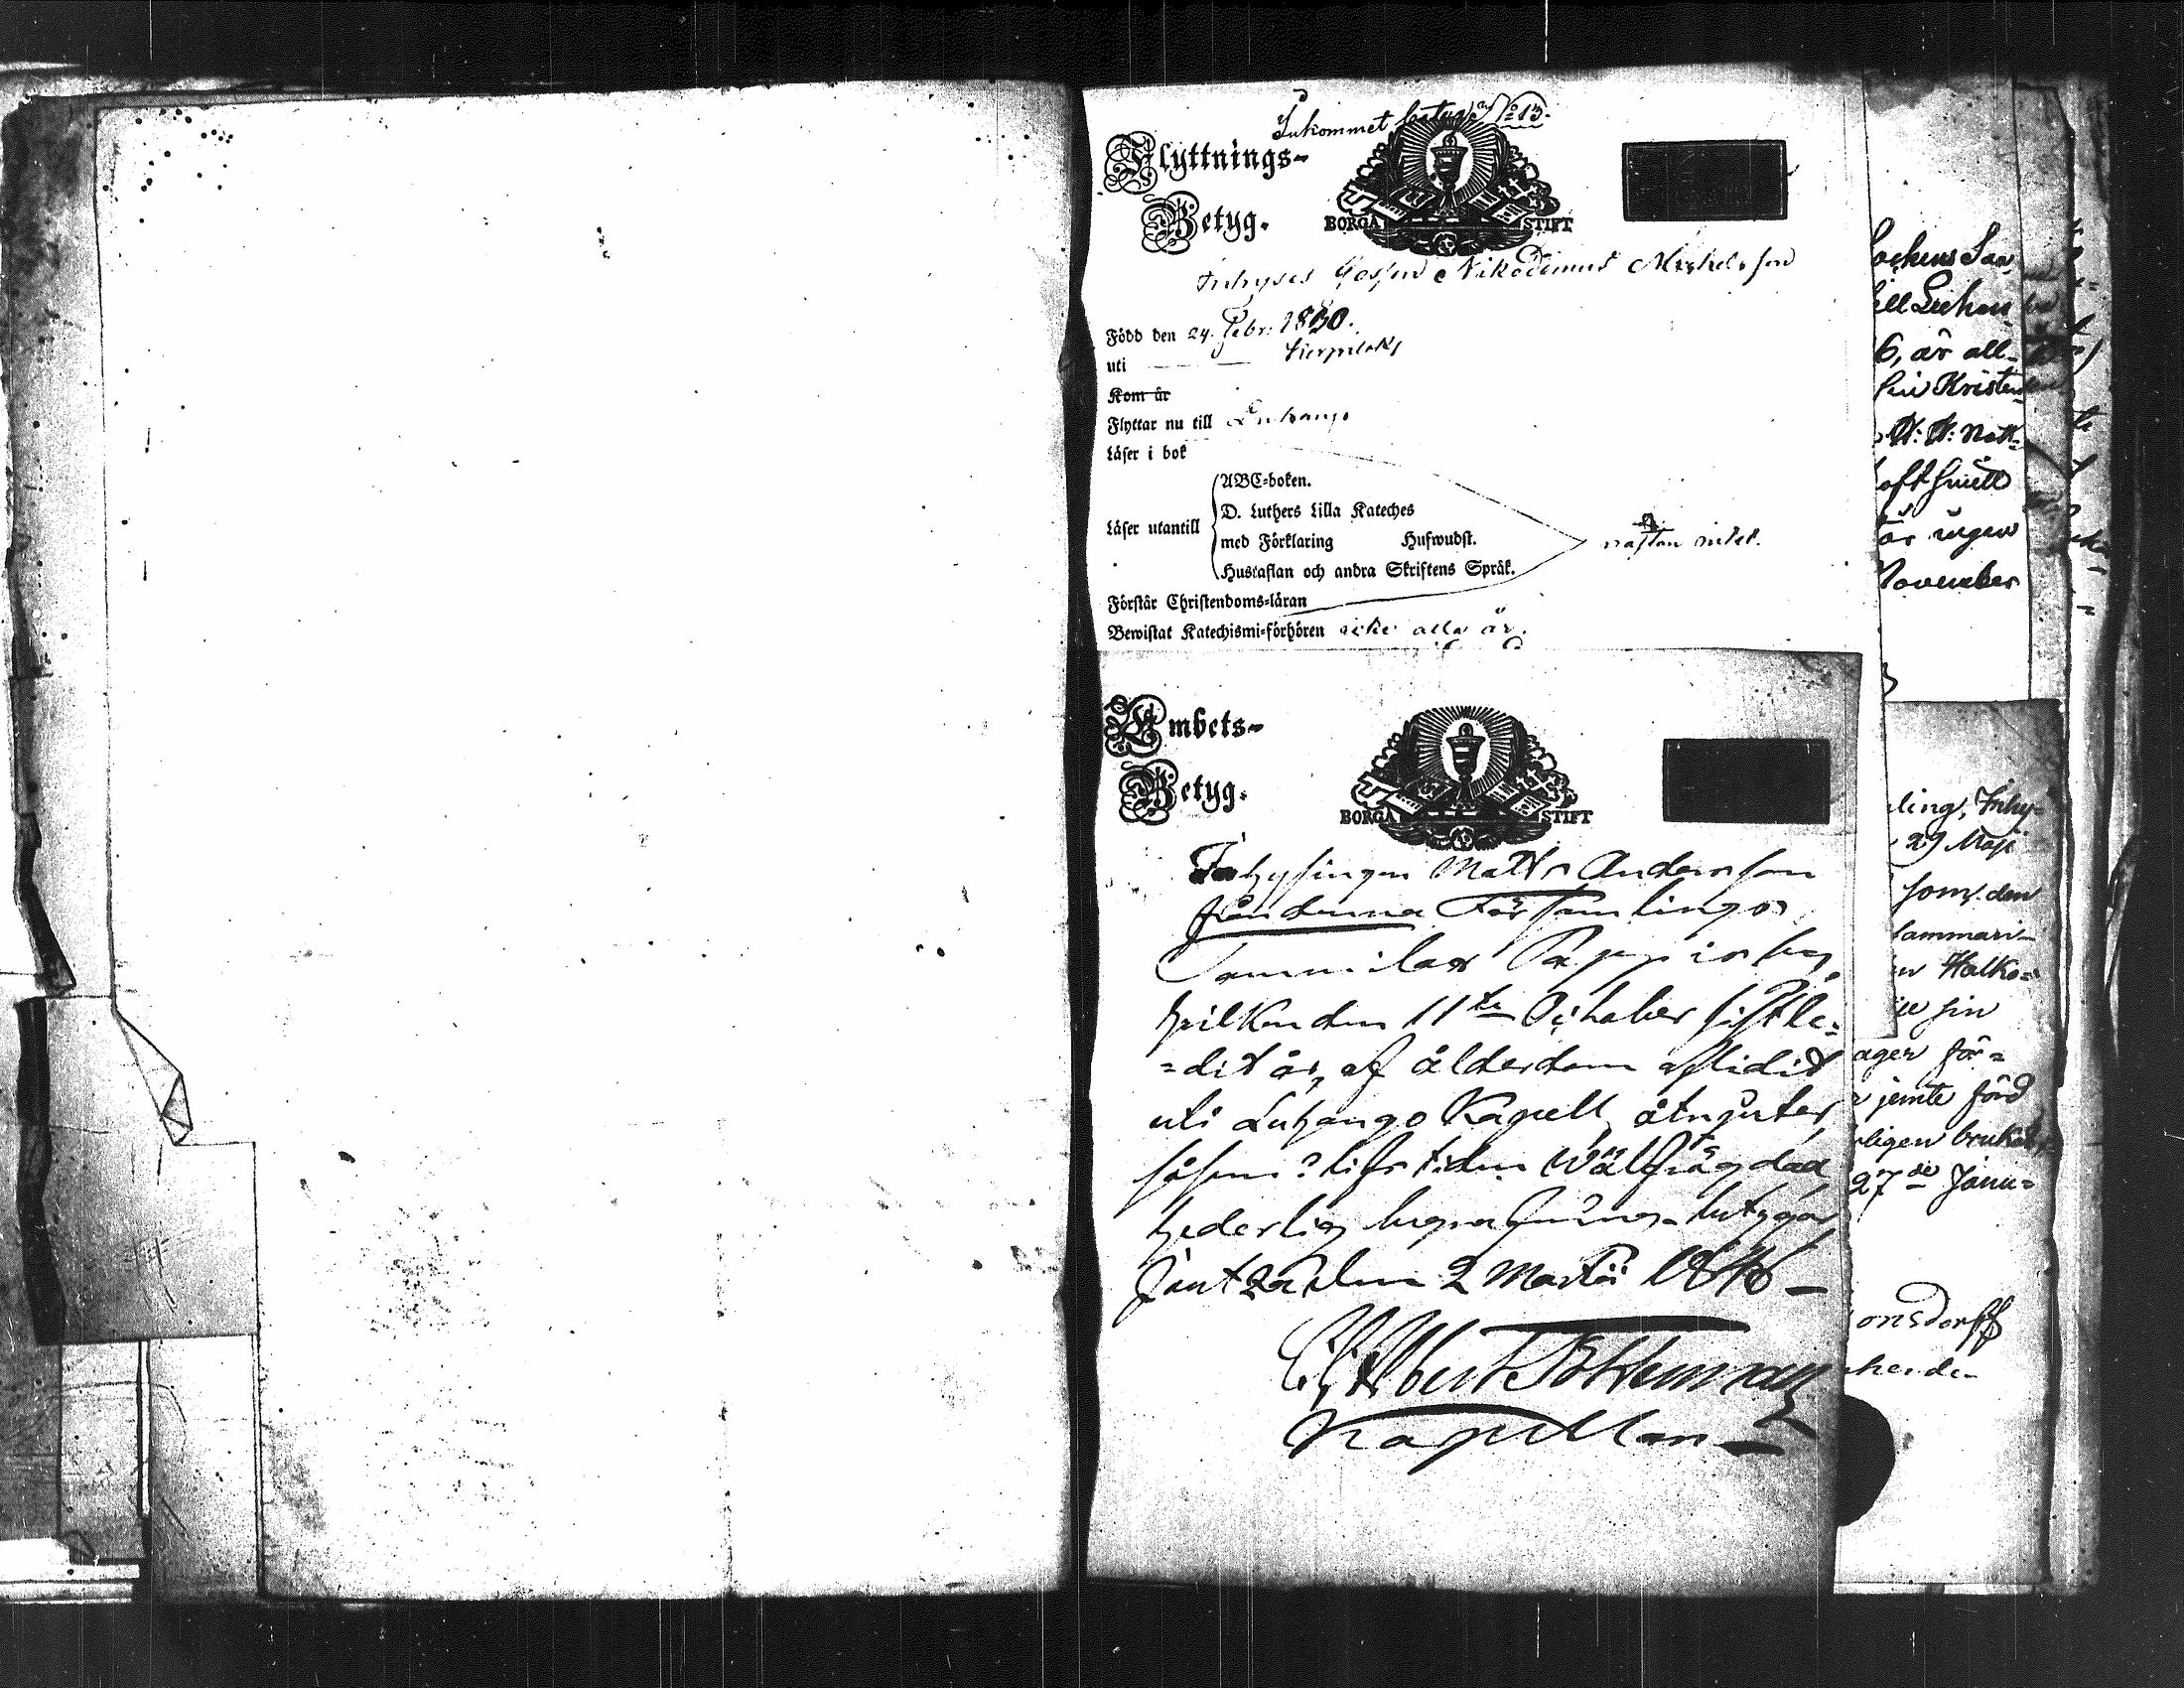 Inkommet betyg N:o 13.
Flyttnings-
Betyg.
BORGÅ STIFT
Inhyses Gossen Nikodemus Michelsson
Född den 24. Febr: 1830.
uti
Kom år
Flyttar nu till Luhango
Läser i bok
Läser utantill
ABC-boken.
D. Luthers Lilla Kateches
med Förklaring Hufwudst.
Hustaflan och andra Skriftens Språk.
nästan intet.
Förstår Christendoms-läran
Bewistat Katechismi-förhören icke alla år.
Embets-
Betyg.
BORGÅ STIFT
Inhysingen Matts Andersson
från denna Församlings
hvilken den 11te October sistle-
=dit år, af ålderdom aflidit
uti Luhango Kapell, åtnjuter,
såsom i lifstiden Wälfrägdad
hederlig begrafning- betygar
Jantza den 2 Martii 1846 –
Kapellan
ockens Saar
till Luhan
6, är all-
sin Kristen
oft
är ingen
November
ling, Inhy-
29 Maji
som den
ammari-
Halko=
sin
ager för=
jemte förd
ligen
27de Janu=
onsdorff